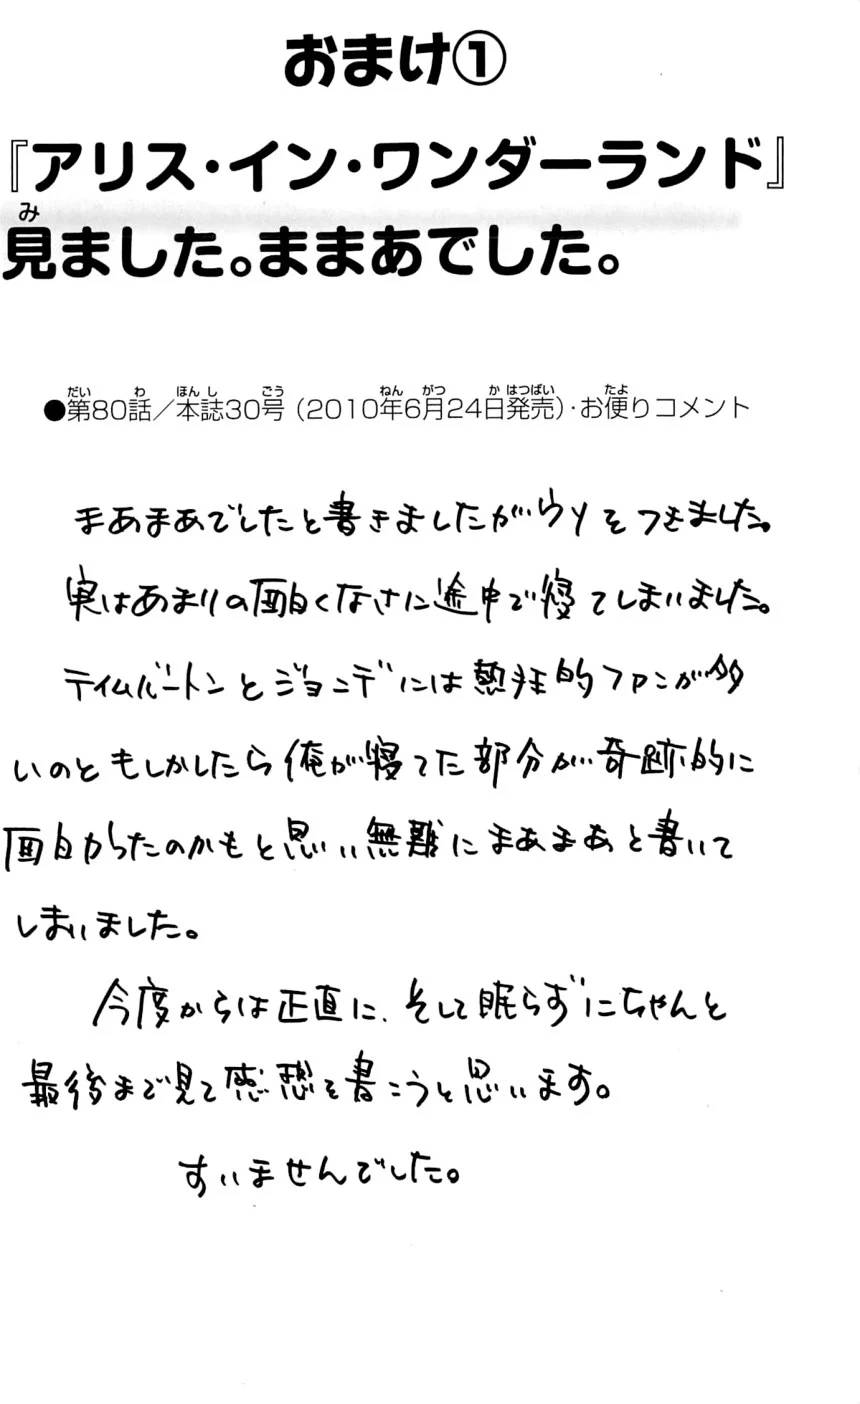 おまけ①
『アリス・イン・ワンダーランド』
見ました。ままあでした。
●第80話／本誌30号（2010年6月24日発売）・お便りコメント
まあまあでしたと書きましたがウソをつきました。
実はあまりの面白くなさに途中で寝てしまいました。
ティムバートンとジョニデには熱狂的ファンが多
いのともしかしたら俺が寝てた部分が奇跡的に
面白かったのかもと思い無難にまあまあと書いて
しまいました。
今度からは正直に、そして眠らずにちゃんと
最後まで見て感想を書こうと思います。
すいませんでした。